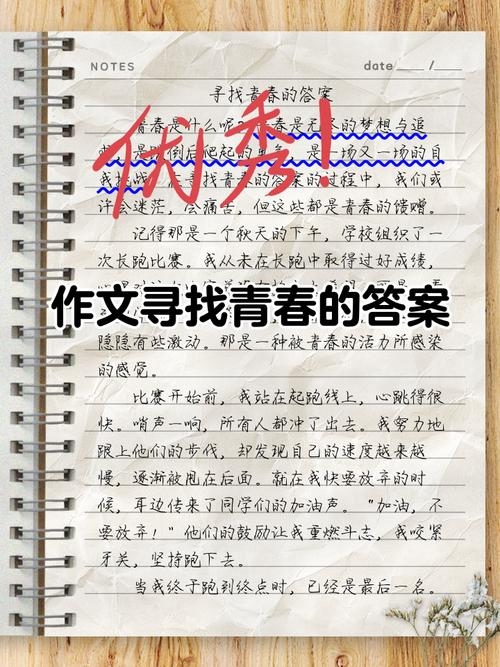 NOTES
date ____ / ____
寻找青春的答案
青春是什么呢 春是无 的梦想与追
是 倒后爬起的 是一场又一场的自
我挑战 在寻找青春的答案的过程中，我们或
许会迷茫，会痛苦，但这些都是青春的馈赠。
优秀!
记得那是一个秋天的下午，学校组织了一
次长跑比赛。我从未在长跑中取得过好成绩，
作文寻找青春的答案
隐隐有些激动。那是一种被青春的活力所感染
的感觉。
比赛开始前，我站在起跑线上，心跳得很
快。哨声一响，所有人都冲了出去。我努力地
跟上他们的步伐，却发现自己的速度越来越
慢，逐渐被甩在后面。就在我快要放弃的时
候，耳边传来了同学们的加油声。“加油，不
要放弃！”他们的鼓励让我重燃斗志，我咬紧
牙关，坚持跑下去。
当我终于跑到终点时，已经是最后一名。